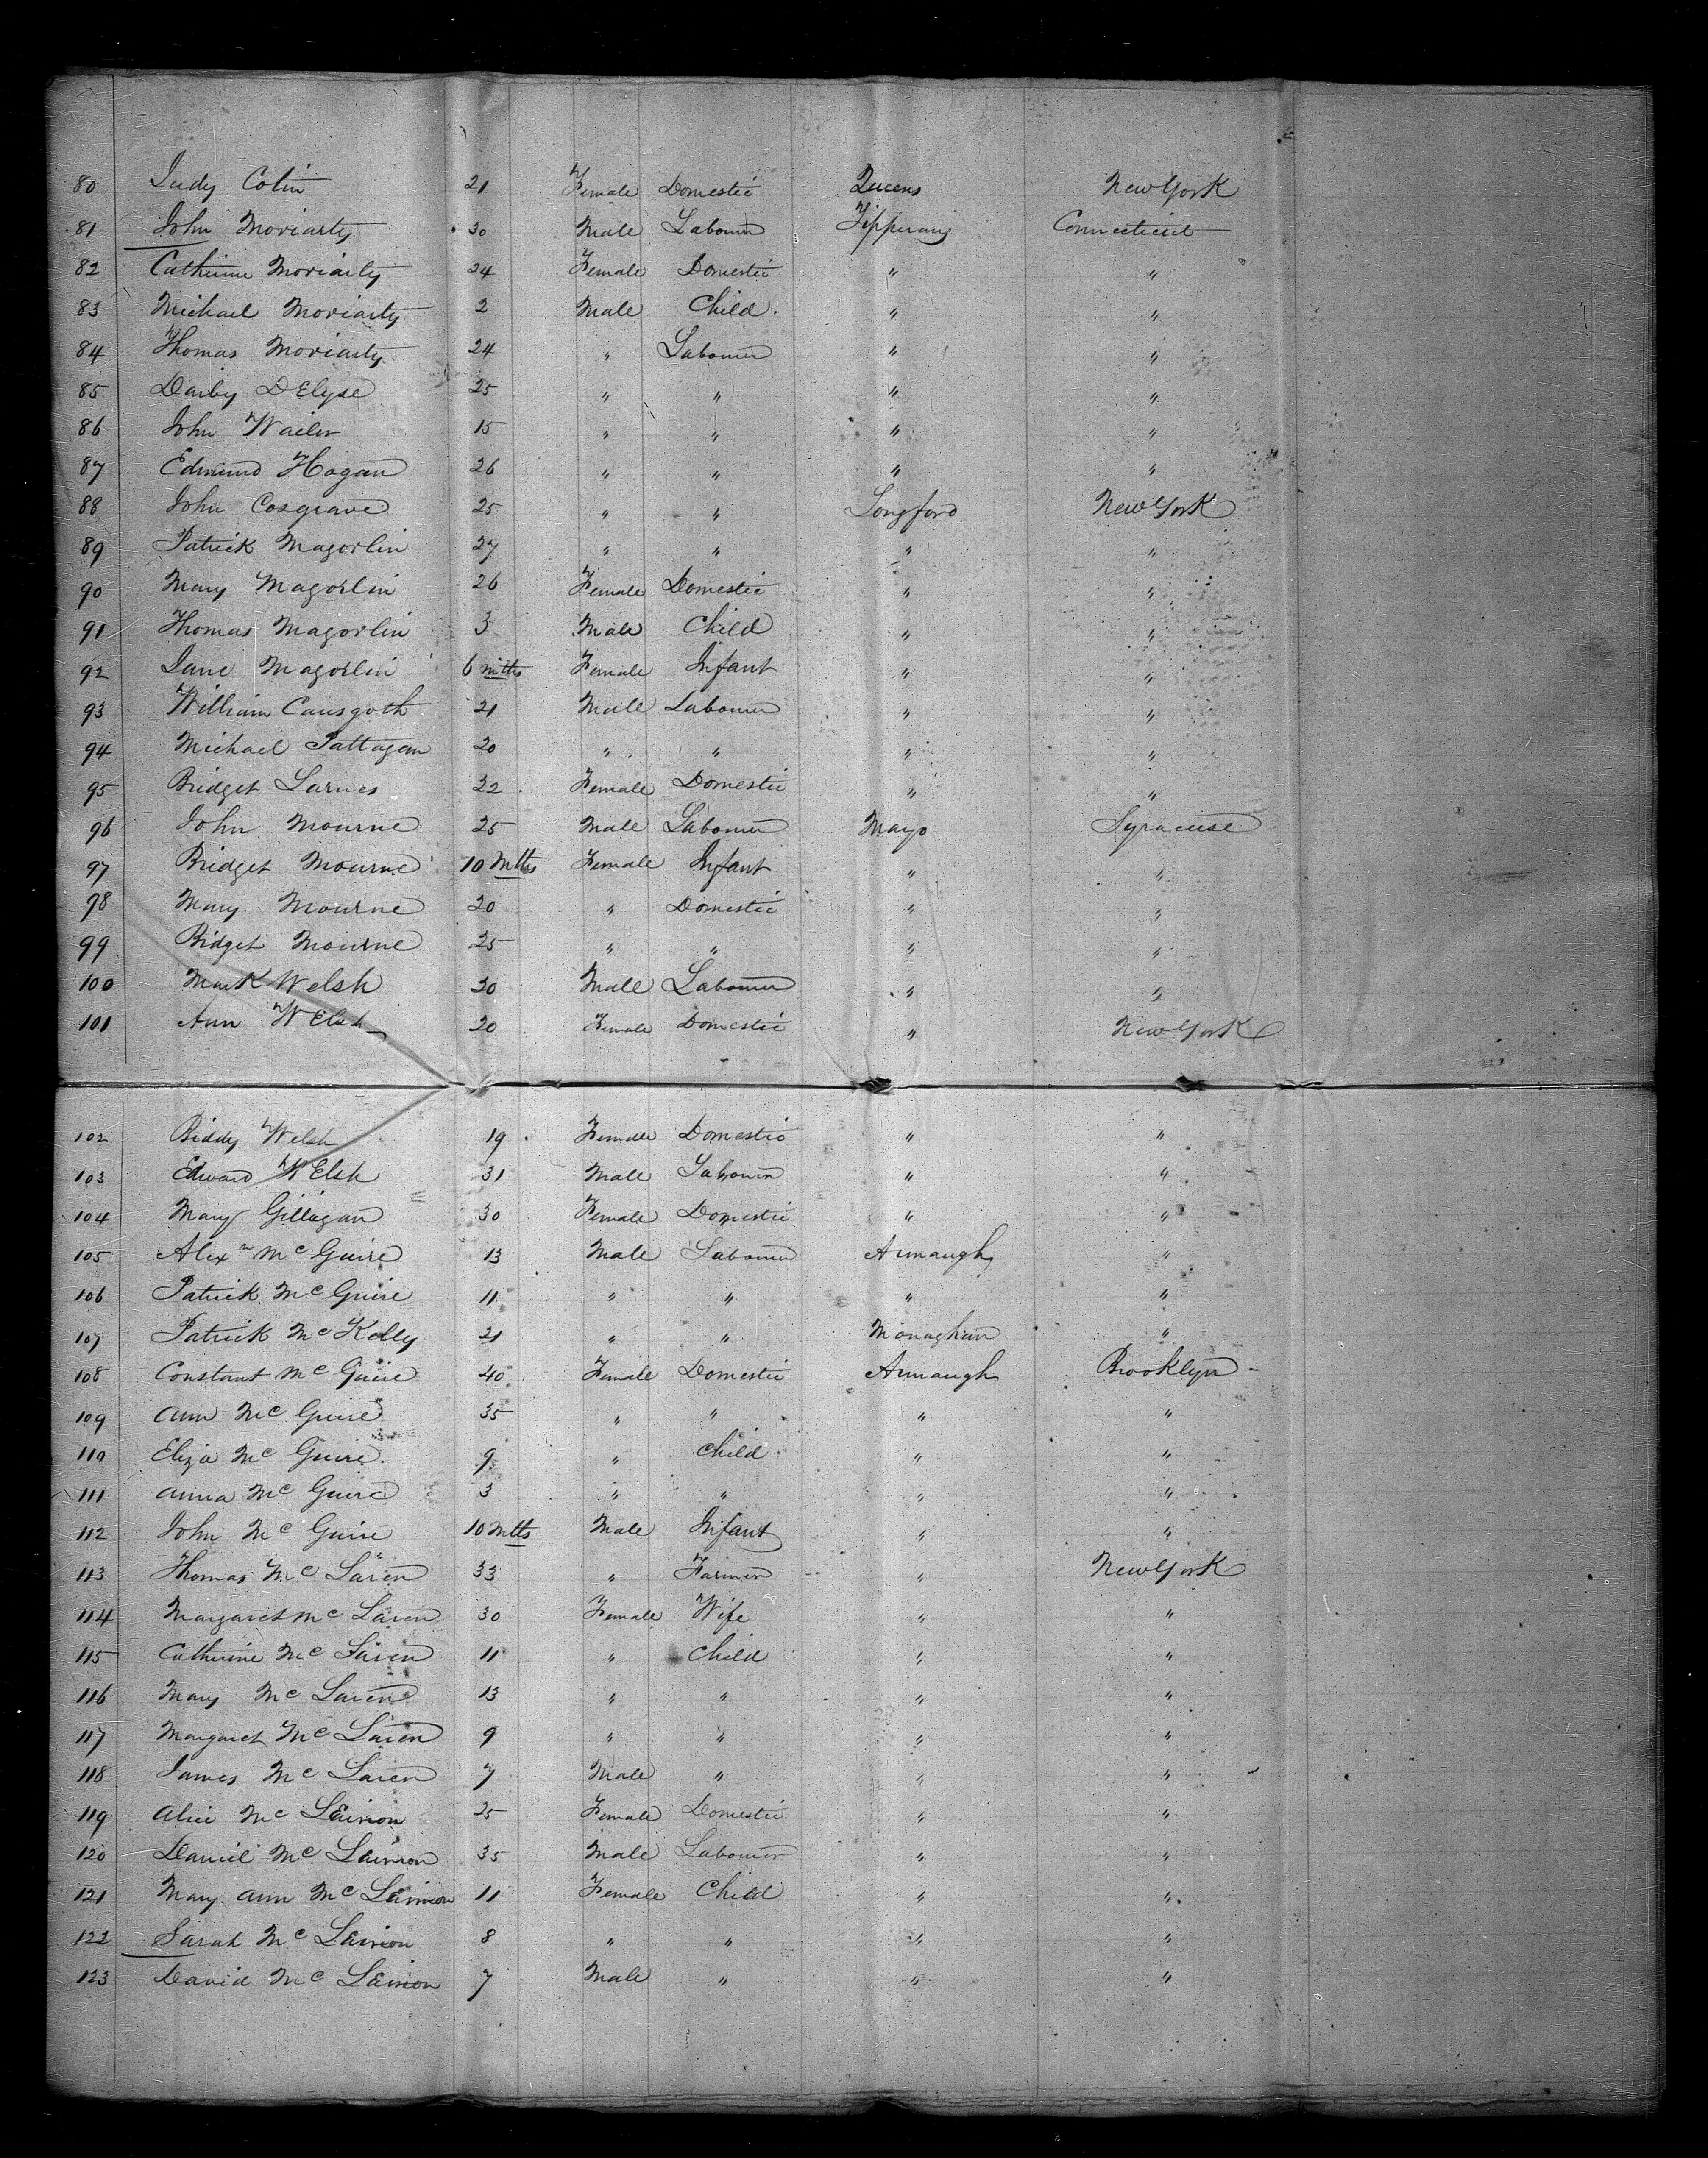 80 Judy Colin 21 Female Domestic Queens New York
81 John Moriarty 30 Male Labourer Tipperary Connecticut
82 Catherine Moriarty 24 Female Domestic " "
83 Michael Moriarty 2 Male Child. " "
84 Thomas Moriarty 24 " Labourer " "
85 Darby DElyse 25 " " " "
86 John Wailer 15 " " " "
87 Edmund Hogan 26 " " " "
88 John Cosgrave 25 " " Longford New York
89 Patrick Magorlin 27 " " " "
90 Mary Magorlin 26 Female Domestic " "
91 Thomas Magorlin 3 Male Child " "
92 Jane Magorlin 6 mths Female Infant " "
93 William Causgoth 21 Male Labourer " "
94 Michael Pattagan 20 " " " "
95 Bridget Larnes 22 Female Domestic " "
96 John Mourne 25 Male Labourer Mayo Syracuse
97 Bridget Mourne 10 Mths Female Infant " "
98 Mary Mourne 20 " Domestic " "
99 Bidget Mourne 25 " " " "
100 Mark Welsh 30 Male Labourer " "
101 Ann WElsh 20 Female Domestic " New York
102 Biddy Welsh 19 Female Domestic " "
103 Edward WElsh 31 Male Labourer " "
104 Mary Gilligan 30 Female Domestic " "
105 Alexr McGuire 13 Male Labourer Armaugh "
106 Patrick McGuire 11 " " " "
107 Patrick McKelly 21 " " Monaghan "
108 Constant McGuire 40 Female Domestic Armaugh Brooklyn
109 Ann McGuire 35 " " " "
110 Eliza McGuire. 9 " Child " "
111 Anna McGuire 3 " " " "
112 John McGuire 10 Mths Male Infant " "
113 Thomas McLaren 33 " Farmer " New York
114 Margaret McLaren 30 Female Wife " "
115 Catherine McLaren 11 " Child " "
116 Mary McLaren 13 " " " "
117 Margaret McLaren 9 " " " "
118 James McLaren 7 Male " " "
119 Alice Mc 25 Female Domestic " "
120 Daniel Mc 35 Male Labourer " "
121 Mary Ann Mc 11 Female Child " "
122 Sarah Mc 8 " " " "
123 David Mc 7 Male " " "